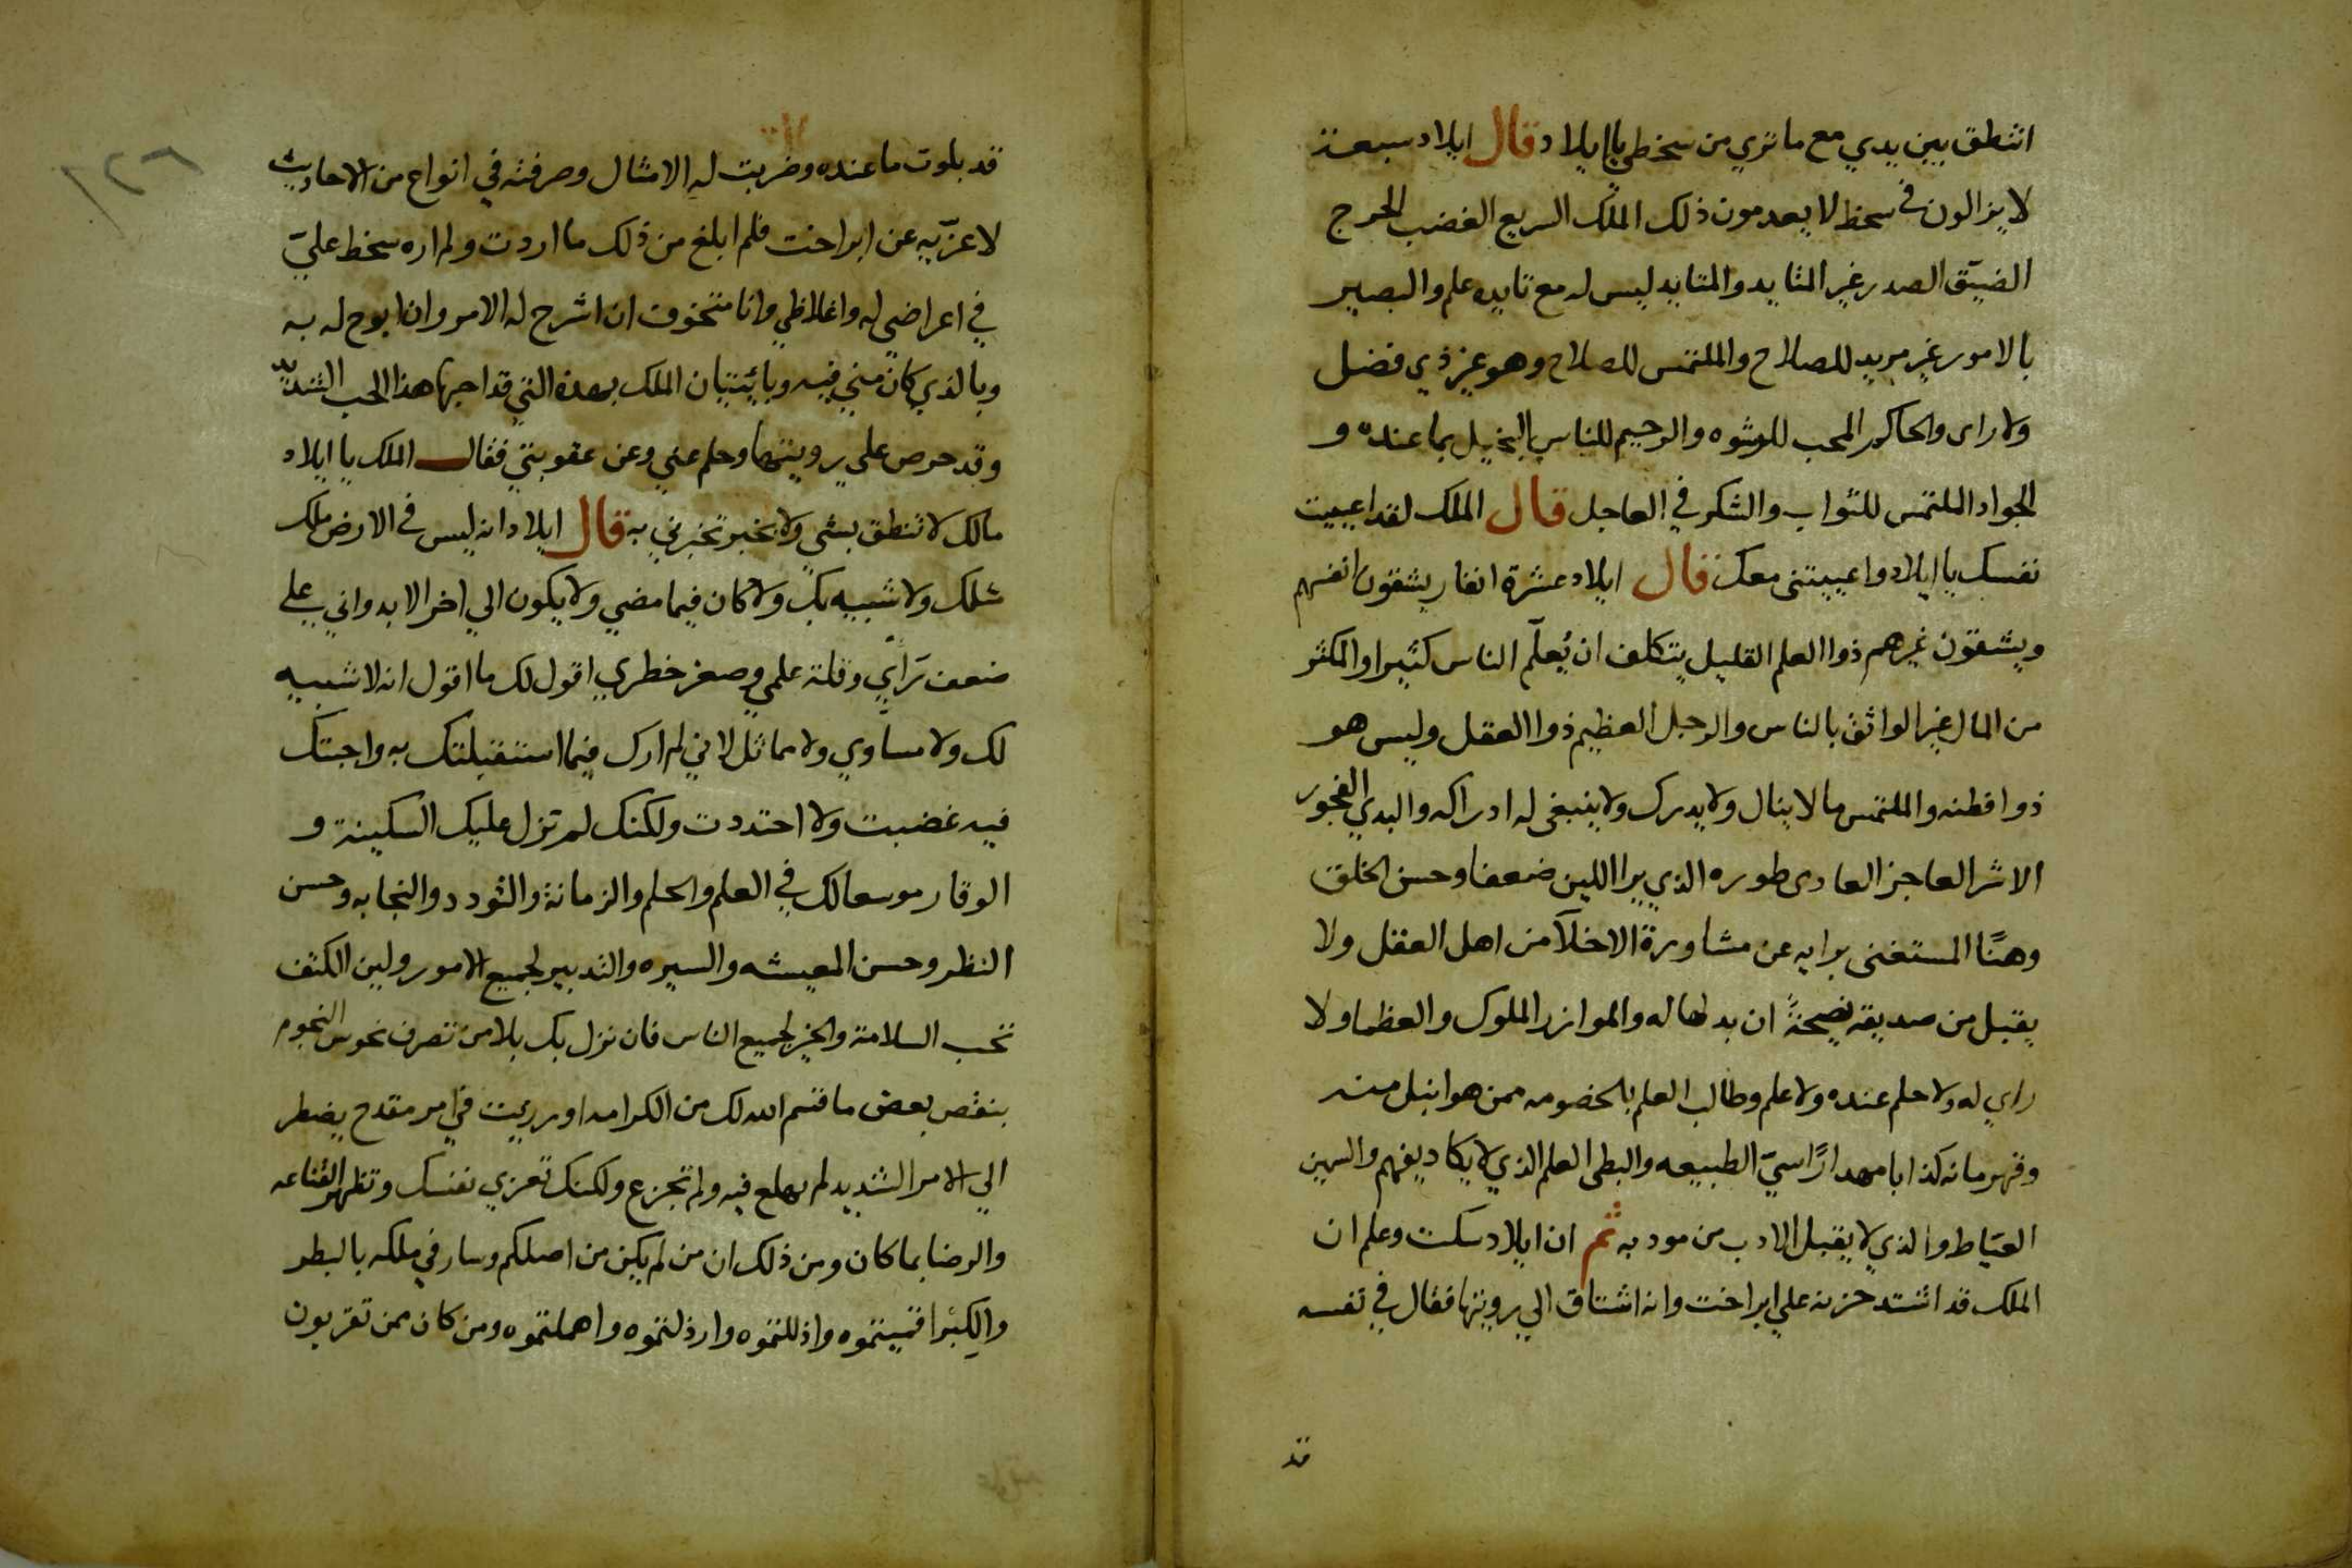 اتنطق بين يدي مع ما تري من سخطي يا ايلاد قال ايلاد سبعة
لا يزالون في سخط لا يعدمون ذلك الملك السريع الغضب الحرج
الضيّق الصدر غير المتايد والمتايد ليس له مع تايده علم والبصير
بالامور غير مريد للصلاح والملتمس للصلاح وهو غير ذي فضل
ولا راى والحاكم المحب للرشوه والرحيم للناس البخيل بما عنده و
الجواد الملتمس للثواب والشكر في العاجل قال الملك لقد اعييت
نفسك يا ايلاد واعييتنى معك قال ايلاد عشرة انفار يشقون انفسهم
ويشقون غيرهم ذوا العلم القليل يتكلف ان يُعلّم الناس كثيرا والمكثر
من المال غير الواثق بالناس والرجل العظيم ذوا العقل وليس هو
ذوا فطنه والملتمس ما لا ينال ولا يدرك ولا ينبغى له ادراكه والبدي الفجور
الاشر العاجز العادى طوره الذي يرا اللين ضعفا وحسن الخلق
وهنًا المستغنى برايه عن مشاورة الاخلآ من اهل العقل ولا
يقبل من صديقه نصيحةً ان بدلها له والموازر الملوك والعظما ولا
راي له ولا حلم عنده ولا علم وطالب العلم بالخصومه ممن هو انبل منه
وقهرمانه كذابا مهدارًا سيّ الطبيعه والبطى العلم الذي لا يكاد يفهم والسهين
العيّاط والذي لا يقبل الادب من مودبه ثم ان ايلاد سكت وعلم ان
الملك قد اشتد حزنه علي ايراخت وانه اشتاق الي رويتها فقال في نفسه
قد
قد بلوت ما عنده وضربت له الامثال وصرفته في انواع من الاحاديث
لاعزّيه عن ايراخت فلم ابلغ من ذلك ما اردت ولم اره سخط عليّ
في اعراضي له واغلاظي وانا متخوف ان اشرح له الامر وان ابوح له به
وبالذي كان مني فيه وباتيتيان الملك بهذه التي قد احبها هذا الحب الشديد
وقد حرص علي رويتها وحلم عني وعن عقوبتي فقال الملك يا ايلاد
مالك لا تنطق بشي ولا بخبر تخبرني به قال ايلاد انه ليس في الارض ملك
مثلك ولا شبيه بك ولا كان فيما مضي ولا يكون الي اخر الابد واني علي
ضعف رَايّي وقلة علمي وصغر خطري اقول لك ما اقول انه لا شبيه
لك ولا مساوي ولا مماثل لاني لم ارك فيما استقبلتك به واجبتك
فيه غضبت ولا احتددت ولكنك لم تزل عليك السكينة و
الوقار موسعا لك في العلم والحلم والزمانة والتودد والنجابه وحسن
النظر وحسن المعيشه والسيره والتدبير لجميع الامور ولين الكنف
تحب السلامة والخير لجميع الناس فان نزل بك بلا من تصرف نحوس النجوم
بنقص بعض ما قسم الله لك من الكرامه او رزيت في امر مقدح يضطر
الي الامر الشديد لم يهلع فيه ولم تجزع ولكنك تعزي نفسك وتظهر القناعه
والرضا بما كان ومن ذلك ان من لم يكن من اصلكم وسار في ملكه بالبطر
والكبر اقميتموه واذللتموه وارذلتموه واهملتموه ومن كان ممن تقربون
١٢٦